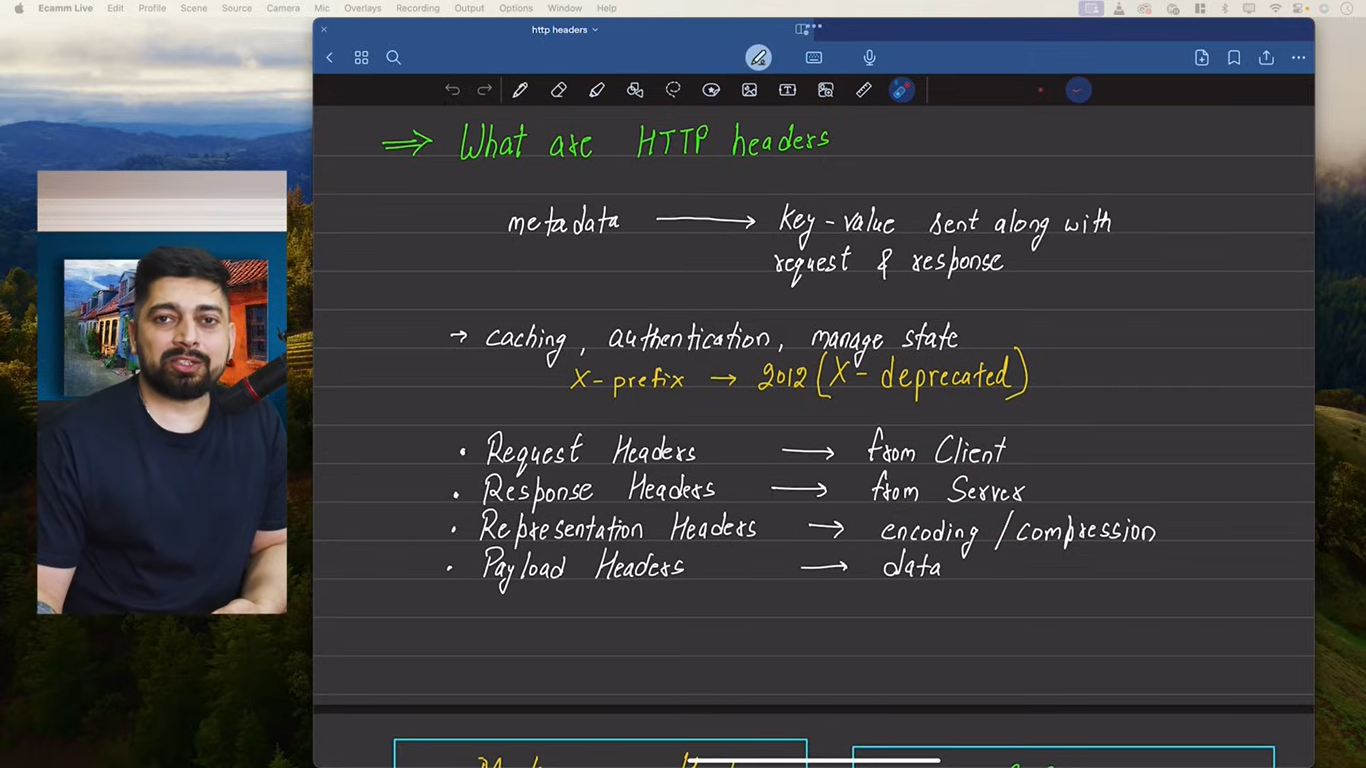 Ecamm Live Edit Profile Scene Source Camera Mic Overlays Recording Output Options Window Help
http headers
⇒ What are HTTP headers
metadata ⟶ Key-value sent along with
request & response
→ caching, authentication, manage state
X-prefix → 2012 (X- deprecated)
• Request Headers ⟶ from Client
• Response Headers ⟶ from Server
• Representation Headers → encoding / compression
• Payload Headers ⟶ data